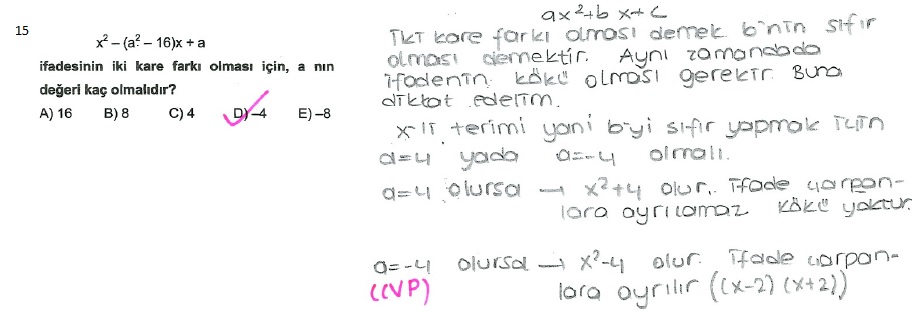 15
x² – (a² – 16)x + a
ifadesinin iki kare farkı olması için, a nın
değeri kaç olmalıdır?
A) 16 B) 8 C) 4 D) –4 E) –8
ax²+bx+c
İki kare farkı olması demek b'nin sıfır
olması demektir. Aynı zamanda
ifadenin kökü olması gerekir. Buna
dikkat edelim.
x'li terimi yani b'yi sıfır yapmak için
a=4 yada a=-4 olmalı.
a=4 olursa → x²+4 olur. İfade çarpan-
lara ayrılamaz kökü yoktur.
a=-4 olursa → x²-4 olur. İfade çarpan-
lara ayrılır ((x-2)(x+2))
(CVP)